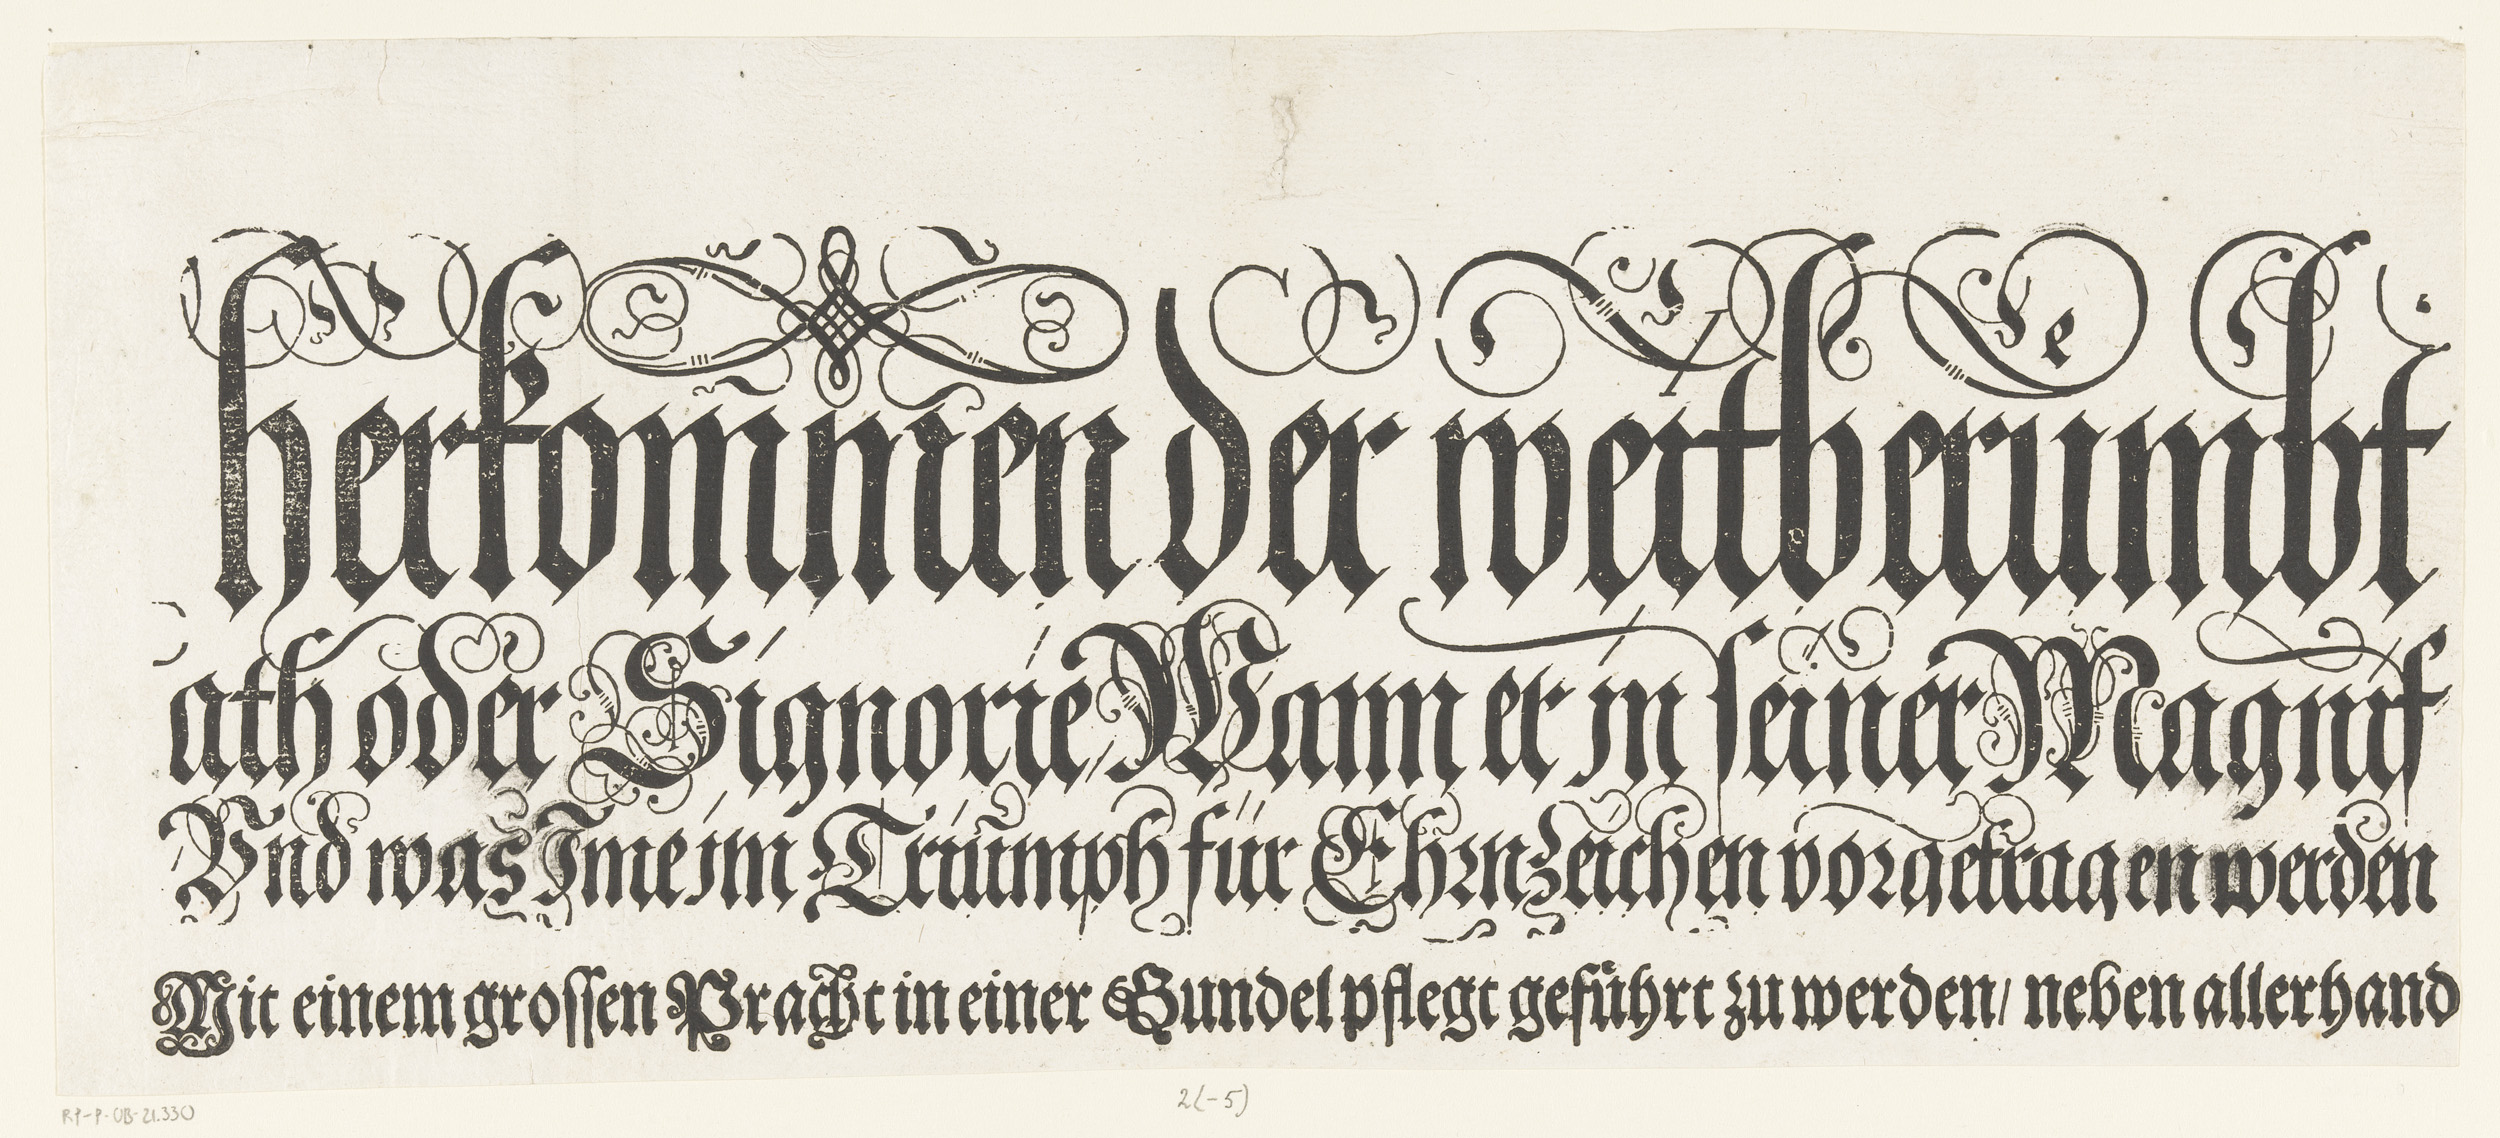 herkommen der weitberumbt
ath oder Signorie/ Wann er in seiner Magnif
Vnd was Ime im Triumph für Ehrnzeichen vorgetragen werden
Mit einem grossen Pracht in einer Gundel pflegt geführt zu werden/ neben allerhand
2(-5)
RP-P-OB-21.330